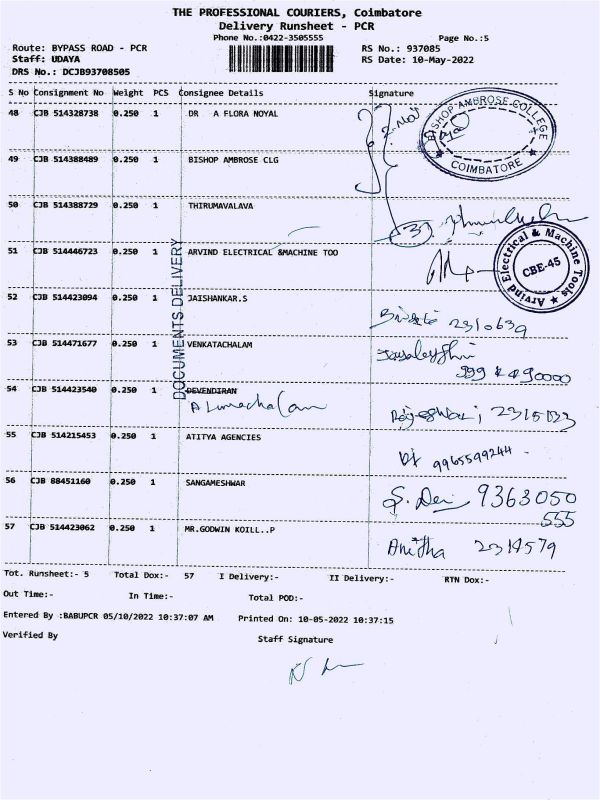 THE PROFESSIONAL COURIERS, Coimbatore
Delivery Runsheet - PCR
Phone No.:0422-3505555 Page No.:5
Route: BYPASS ROAD - PCR RS No.: 937085
Staff: UDAYA RS Date: 10-May-2022
DRS No.: DCJB93708505
S No Consignment No Weight PCS Consignee Details Signature
48 CJB 514328738 0.250 1 DR A FLORA NOYAL
BISHOP AMBROSE COLLEGE
COIMBATORE
49 CJB 514388489 0.250 1 BISHOP AMBROSE CLG
50 CJB 514388729 0.250 1 THIRUMAVALAVA
51 CJB 514446723 0.250 1 ARVIND ELECTRICAL &MACHINE TOO
Arvind Electrical & Machine Tools
CBE-45
DOCUMENTS DELIVERY
52 CJB 514423094 0.250 1 JAISHANKAR.S
2310639
53 CJB 514471677 0.250 1 VENKATACHALAM
54 CJB 514423540 0.250 1 DEVENDIRAN
55 CJB 514215453 0.250 1 ATITYA AGENCIES
9965599244
56 CJB 88451160 0.250 1 SANGAMESHWAR
9363050
555
57 CJB 514423062 0.250 1 MR.GODWIN KOILL..P
Anitha 2314579
Tot. Runsheet:- 5 Total Dox:- 57 I Delivery:- II Delivery:- RTN Dox:-
Out Time:- In Time:- Total POD:-
Entered By :BABUPCR 05/10/2022 10:37:07 AM Printed On: 10-05-2022 10:37:15
Verified By Staff Signature